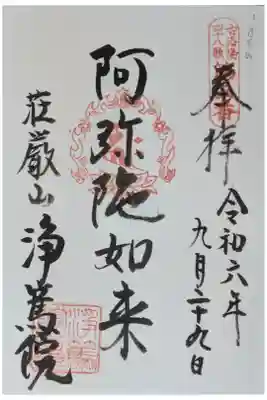 奉拝
令和六年
九月二十九日
阿弥陀如来
荘厳山